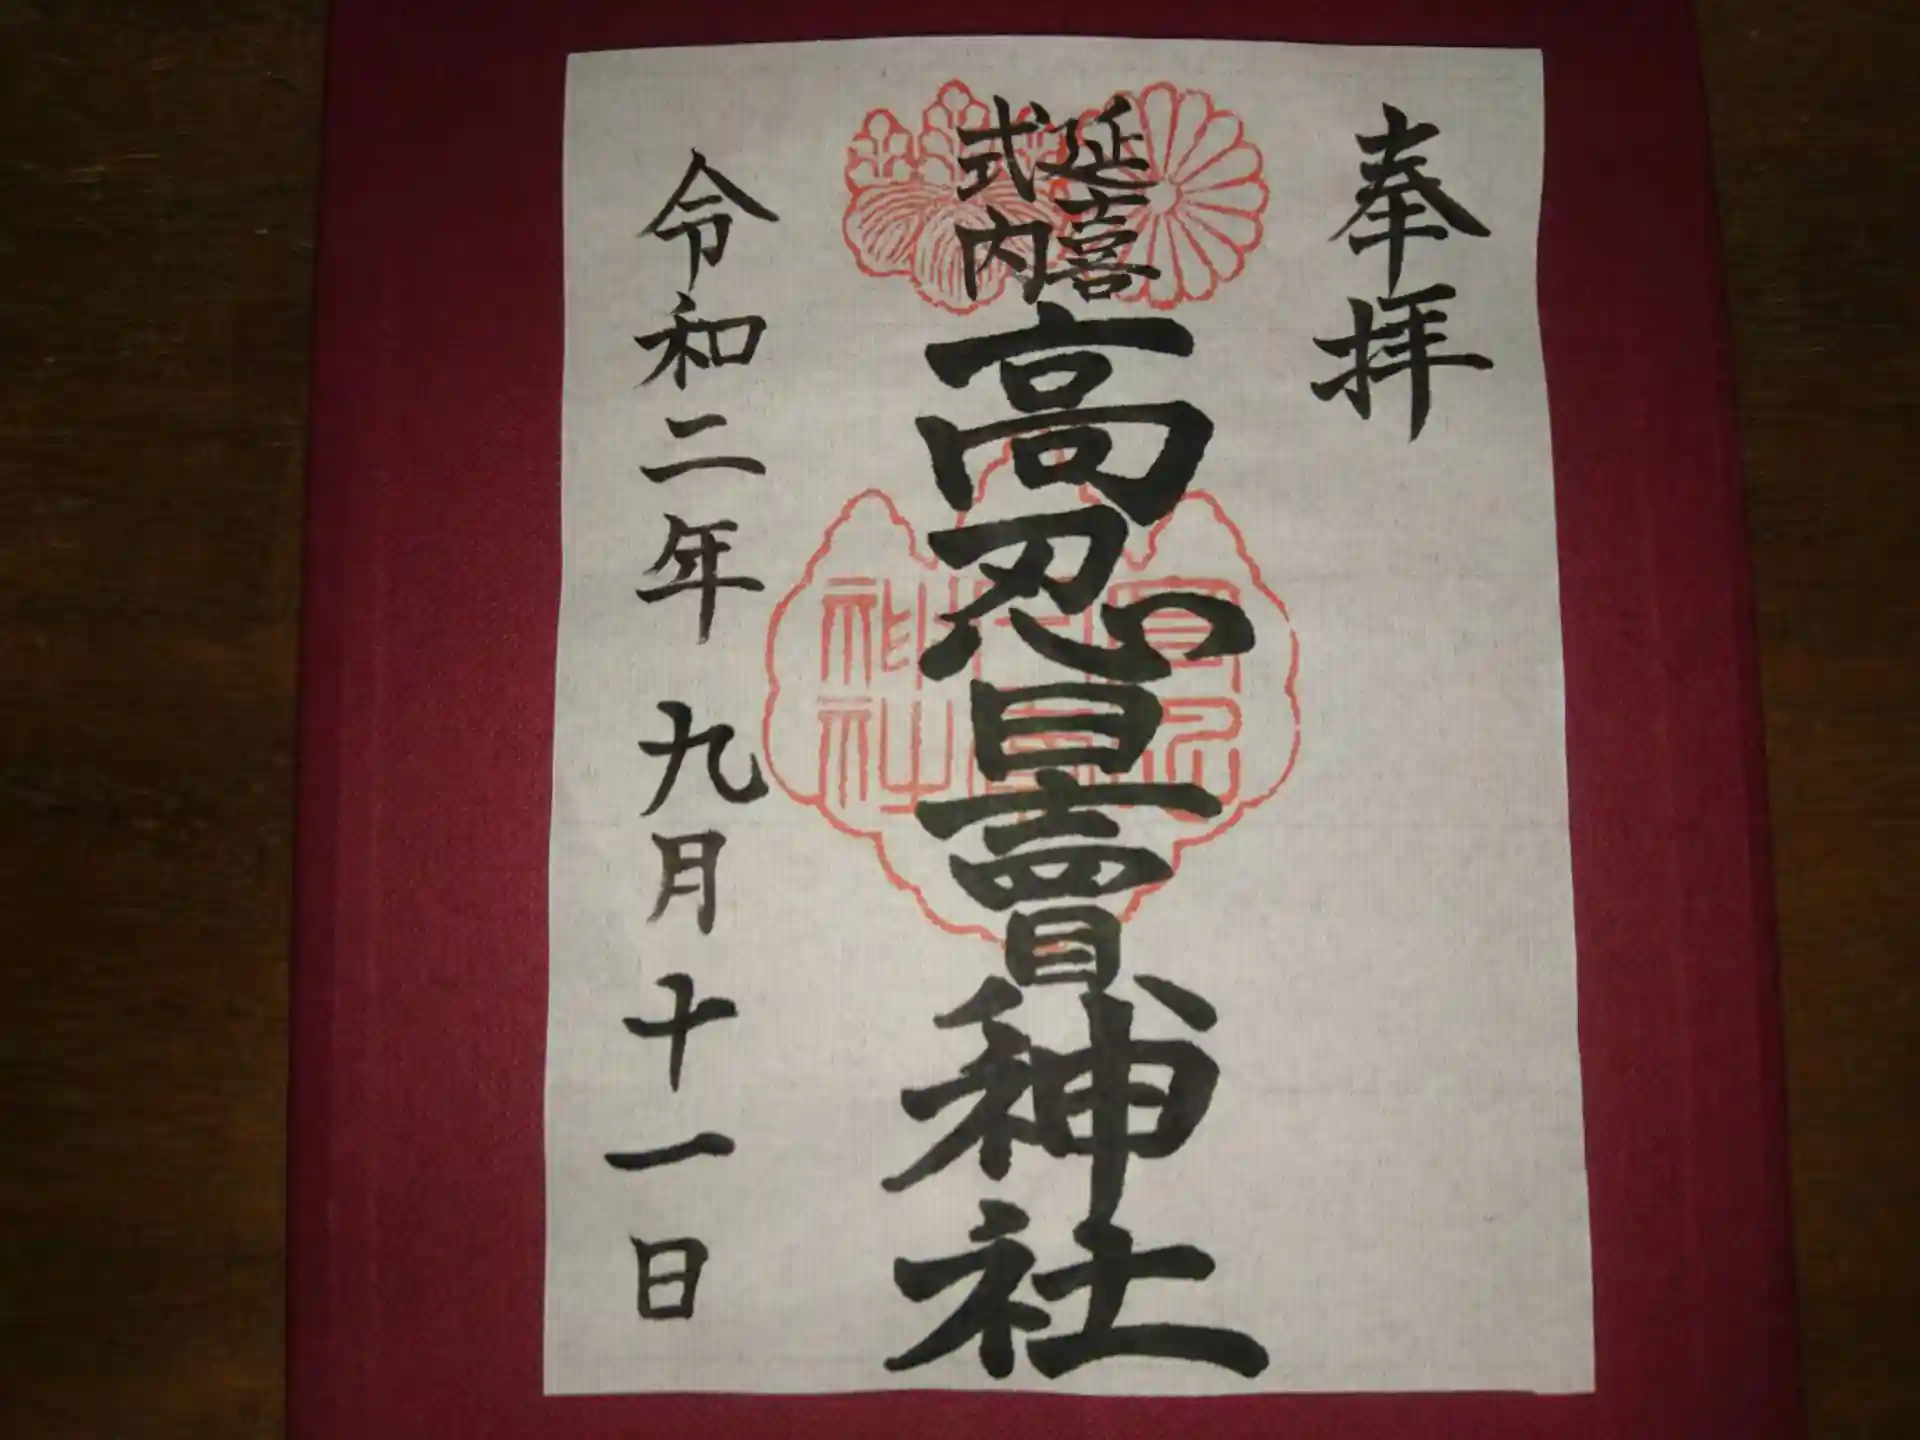 奉拝
延喜
式内
高忍日賣神社
令和二年 九月十一日